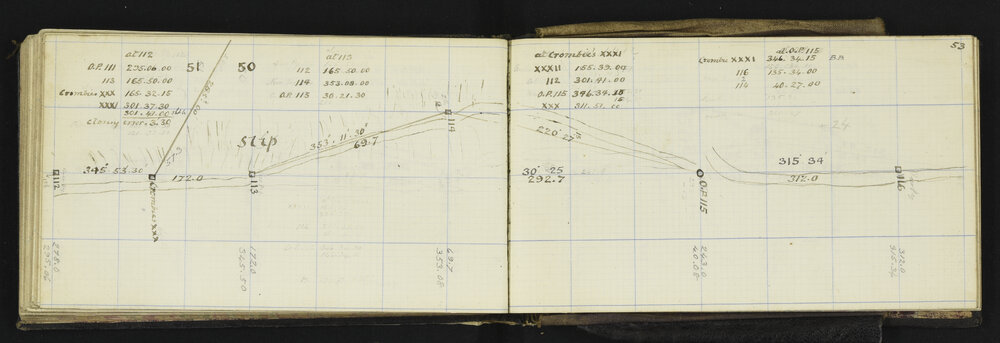 at 112
O.P. 111 295.06.00
113 165.50.00
Crombie XXX 165.32.15
XXXI 301.37.30
301.41.00
Closing error 3.30
51 50
at 113
112 165.50.00
114 353.08.00
O.P. 115 30.21.30
Slip
353° 11' 30"
69.7
345° 53' 30"
172.0
57.3
112
Crombie's XXX
113
114
278.0
295.06
172.0
69.7
353.08
53
at Crombie's XXXI
XXXII 155.39.00
112 301.41.00
O.P. 115 346.34.15
XXX 311.51.00
at O.P. 115
Crombie XXXI 346.34.15 B.B.
116 135.34.00
114 40.27.00
220° 27'
30° 25
292.7
O.P. 115
315° 34'
312.0
116
243.0
40.08
312.0
315.34